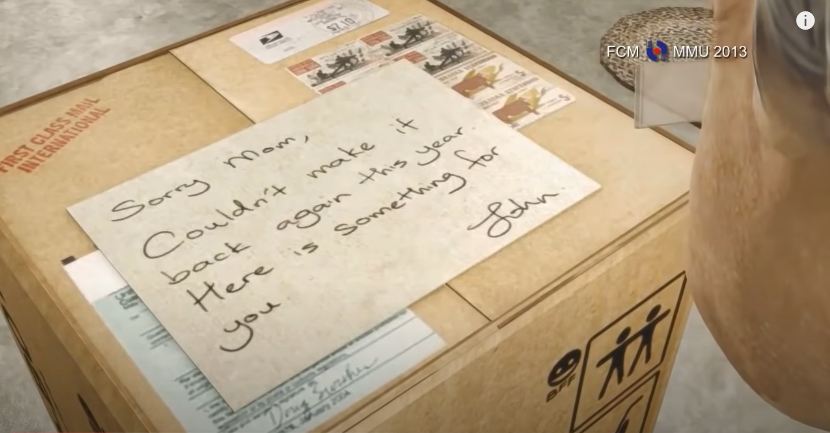 FCM MMU 2013
$2.10
FIRST CLASS MAIL
INTERNATIONAL
Sorry Mom,
Couldn't make it
back again this year.
Here is something for
you
John.
BFF